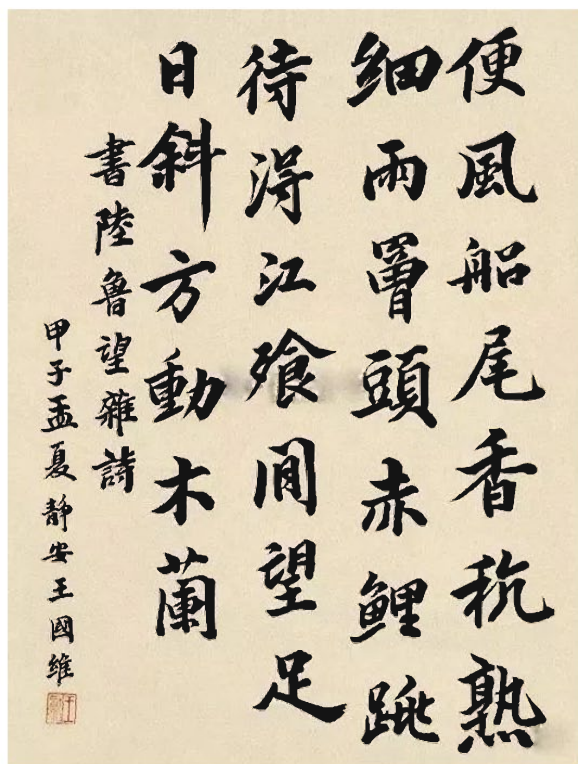 便風船尾香秔熟
細雨罾頭赤鯉跳
待得江飡閒望足
日斜方動木蘭
書陸魯望雜詩
甲子孟夏靜安王國維